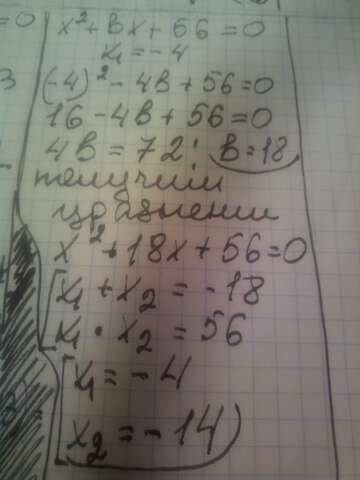 =0
x² + bx + 56 = 0
x₁ = -4
3
(-4)² - 4b + 56 = 0
16 - 4b + 56 = 0
4b = 72; b = 18
получим
уравнении
x² + 18x + 56 = 0
x₁ + x₂ = -18
x₁ · x₂ = 56
x₁ = -4
x₂ = -14